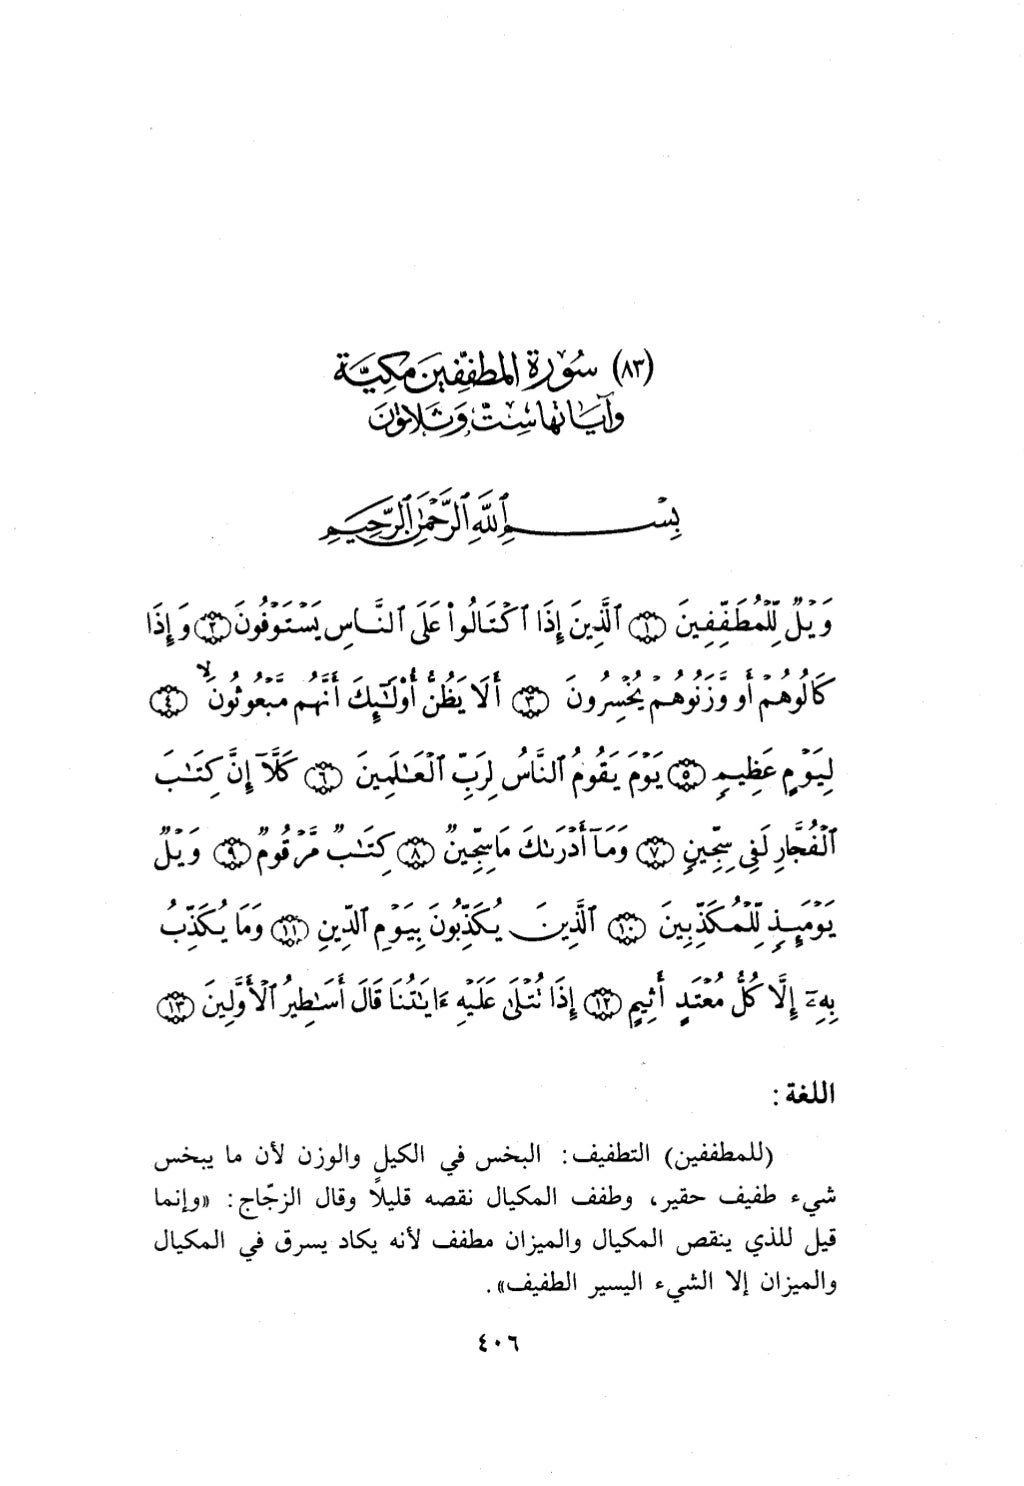 (٨٣) سُورة المطفّفِين مَكِيَّة
وآيَاتها سِتّ وَثَلاثون
بِسْمِ ٱللَّهِ ٱلرَّحْمَٰنِ ٱلرَّحِيمِ
وَيْلٌ لِّلْمُطَفِّفِينَ ١ ٱلَّذِينَ إِذَا ٱكْتَالُوا۟ عَلَى ٱلنَّاسِ يَسْتَوْفُونَ ٢ وَإِذَا
كَالُوهُمْ أَو وَّزَنُوهُمْ يُخْسِرُونَ ٣ أَلَا يَظُنُّ أُو۟لَٰٓئِكَ أَنَّهُم مَّبْعُوثُونَ ۙ ٤
لِيَوْمٍ عَظِيمٍ ٥ يَوْمَ يَقُومُ ٱلنَّاسُ لِرَبِّ ٱلْعَٰلَمِينَ ٦ كَلَّآ إِنَّ كِتَٰبَ
ٱلْفُجَّارِ لَفِى سِجِّينٍ ٧ وَمَآ أَدْرَىٰكَ مَا سِجِّينٌ ٨ كِتَٰبٌ مَّرْقُومٌ ٩ وَيْلٌ
يَوْمَئِذٍ لِّلْمُكَذِّبِينَ ١٠ ٱلَّذِينَ يُكَذِّبُونَ بِيَوْمِ ٱلدِّينِ ١١ وَمَا يُكَذِّبُ
بِهِۦٓ إِلَّا كُلُّ مُعْتَدٍ أَثِيمٍ ١٢ إِذَا تُتْلَىٰ عَلَيْهِ ءَايَٰتُنَا قَالَ أَسَٰطِيرُ ٱلْأَوَّلِينَ ١٣
اللغة :
(للمطففين) التطفيف: البخس في الكيل والوزن لأن ما يبخس
شيء طفيف حقير، وطفف المكيال نقصه قليلًا وقال الزجّاج: «وإنما
قيل للذي ينقص المكيال والميزان مطفف لأنه يكاد يسرق في المكيال
والميزان إلا الشيء اليسير الطفيف».
٤٠٦